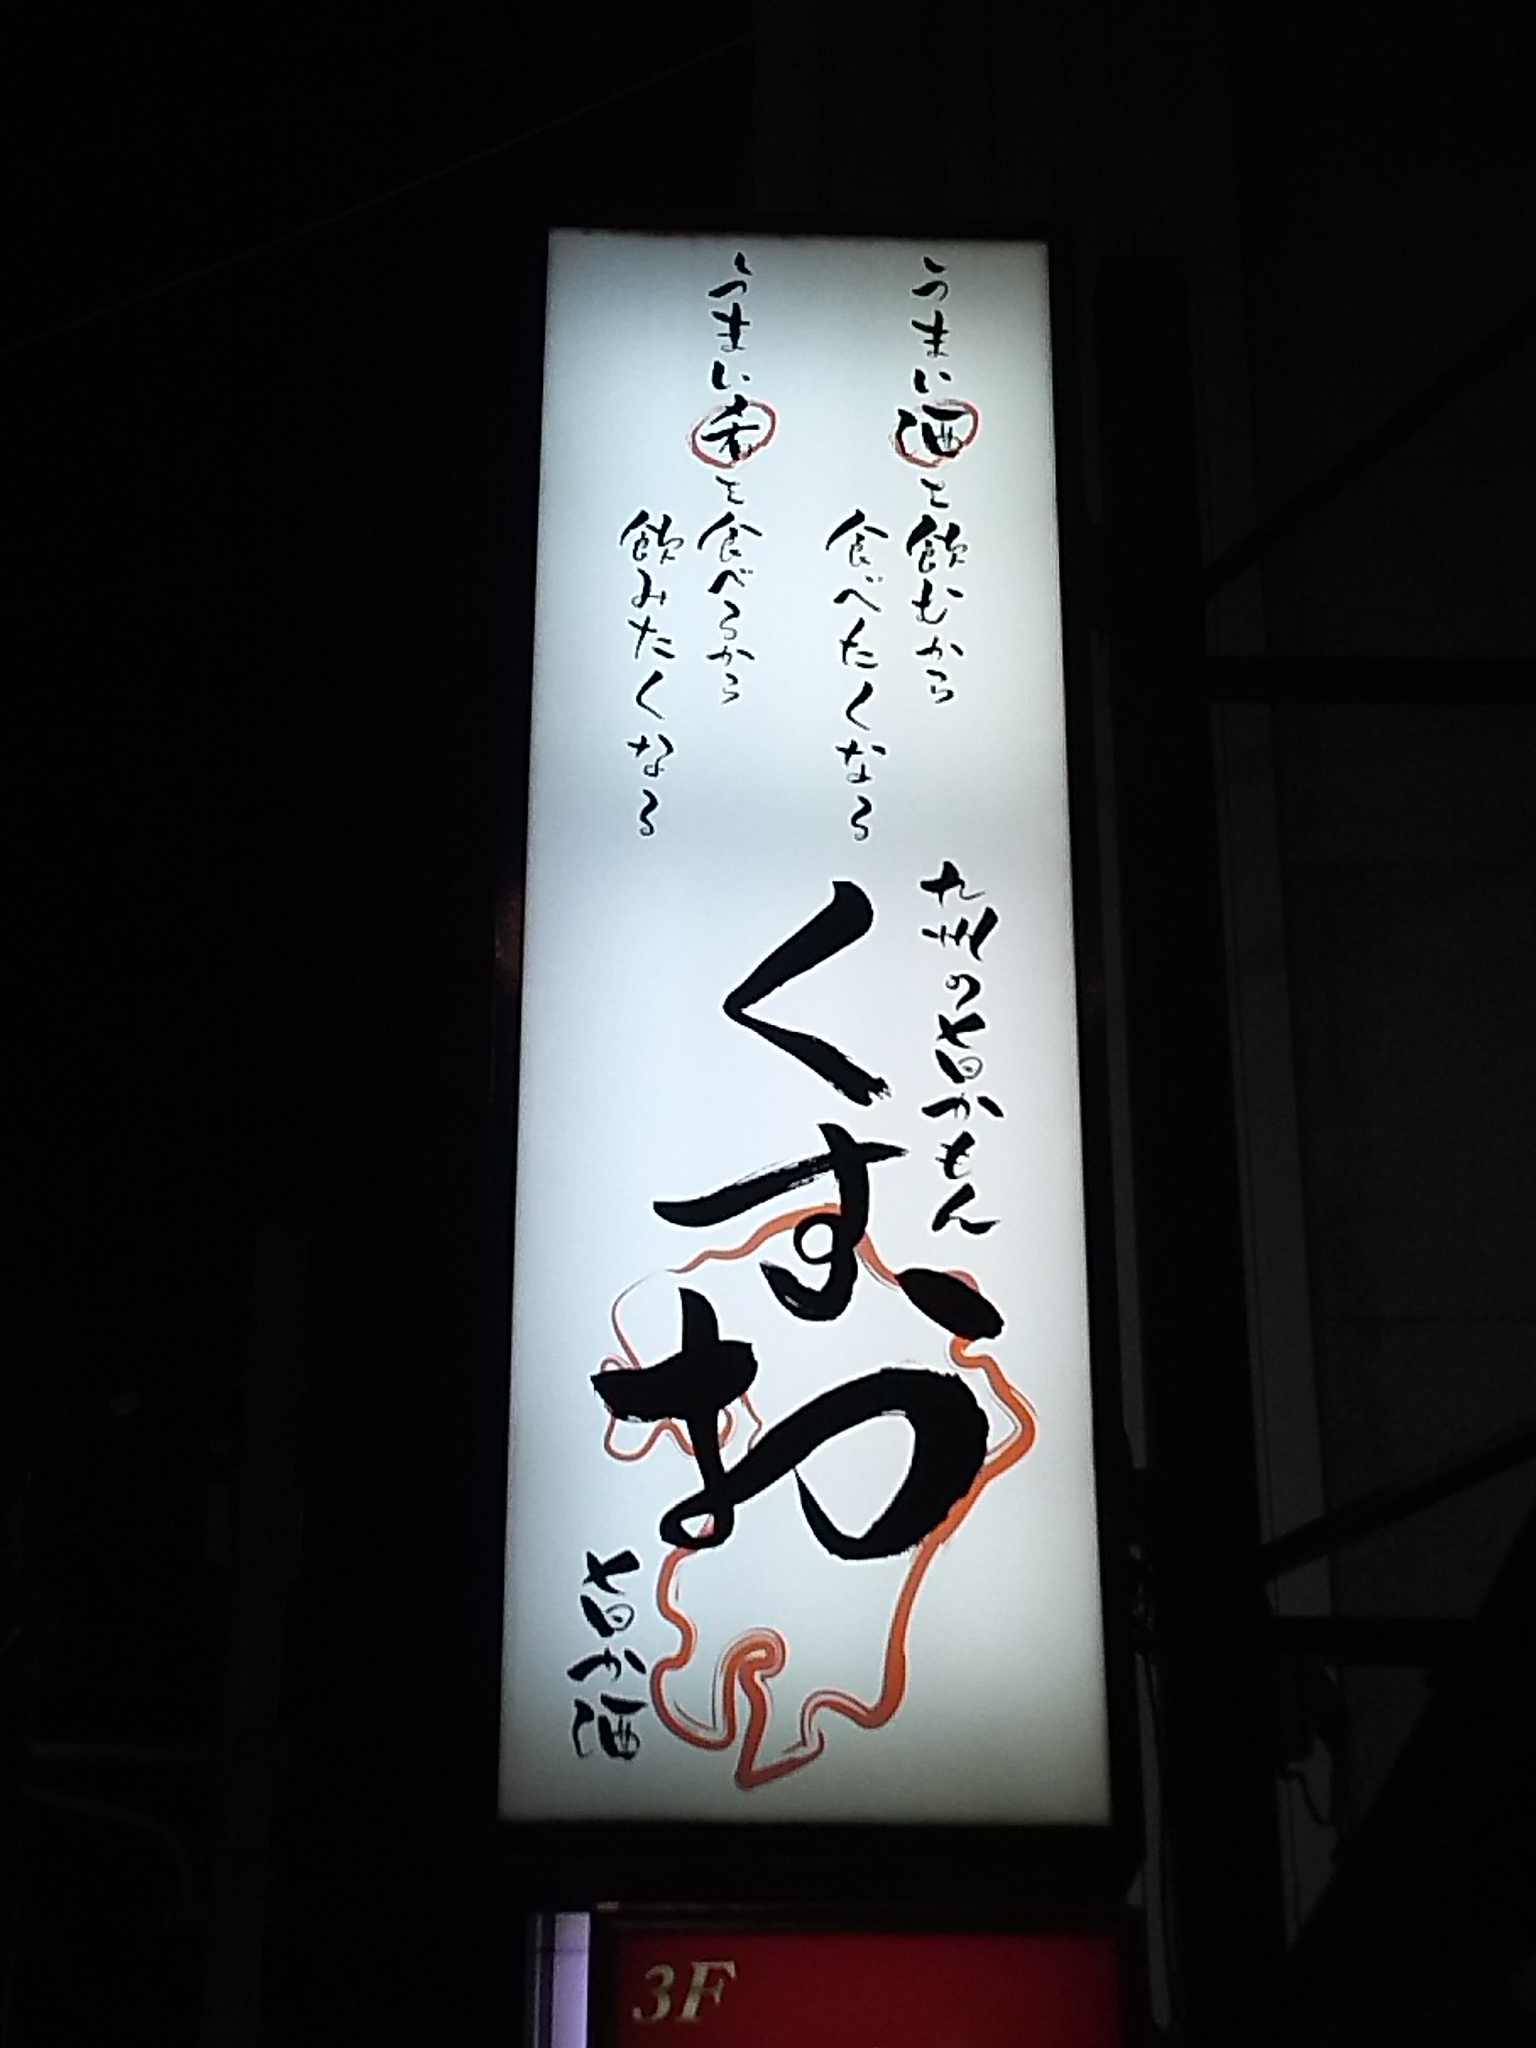 うまい酒を飲むから
食べたくなる
うまい肴を食べるから
飲みたくなる
九州の旨かもん
くすお
旨か酒
3F